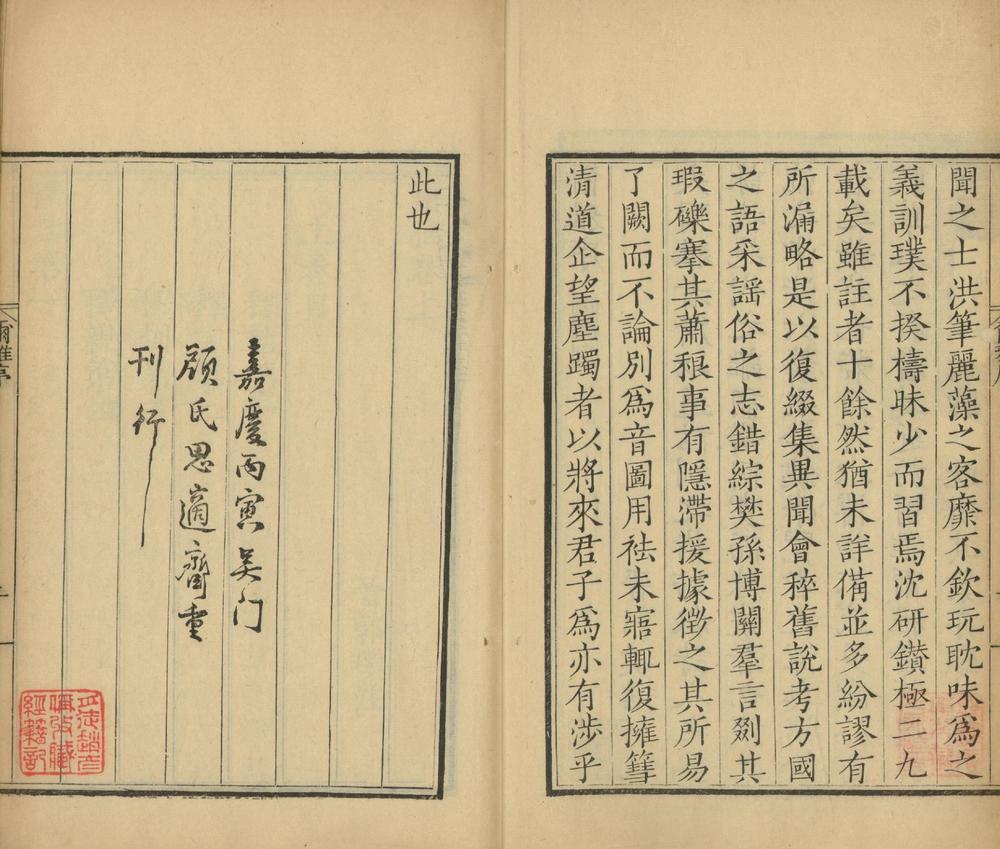 聞之士洪筆麗藻之客靡不欽玩耽味爲之
義訓璞不揆檮昧少而習焉沈研鑽極二九
載矣雖註者十餘然猶未詳備並多紛謬有
所漏略是以復綴集異聞會稡舊說考方國
之語采謡俗之志錯綜樊孫博關羣言剟其
瑕礫搴其蕭稂事有隱滯援據徵之其所易
了闕而不論別爲音圖用祛未寤輒復擁篲
清道企望塵躅者以將來君子爲亦有涉乎
此也
嘉慶丙寅吴门
顧氏思適齋重
刊行
爾雅序
經籍記